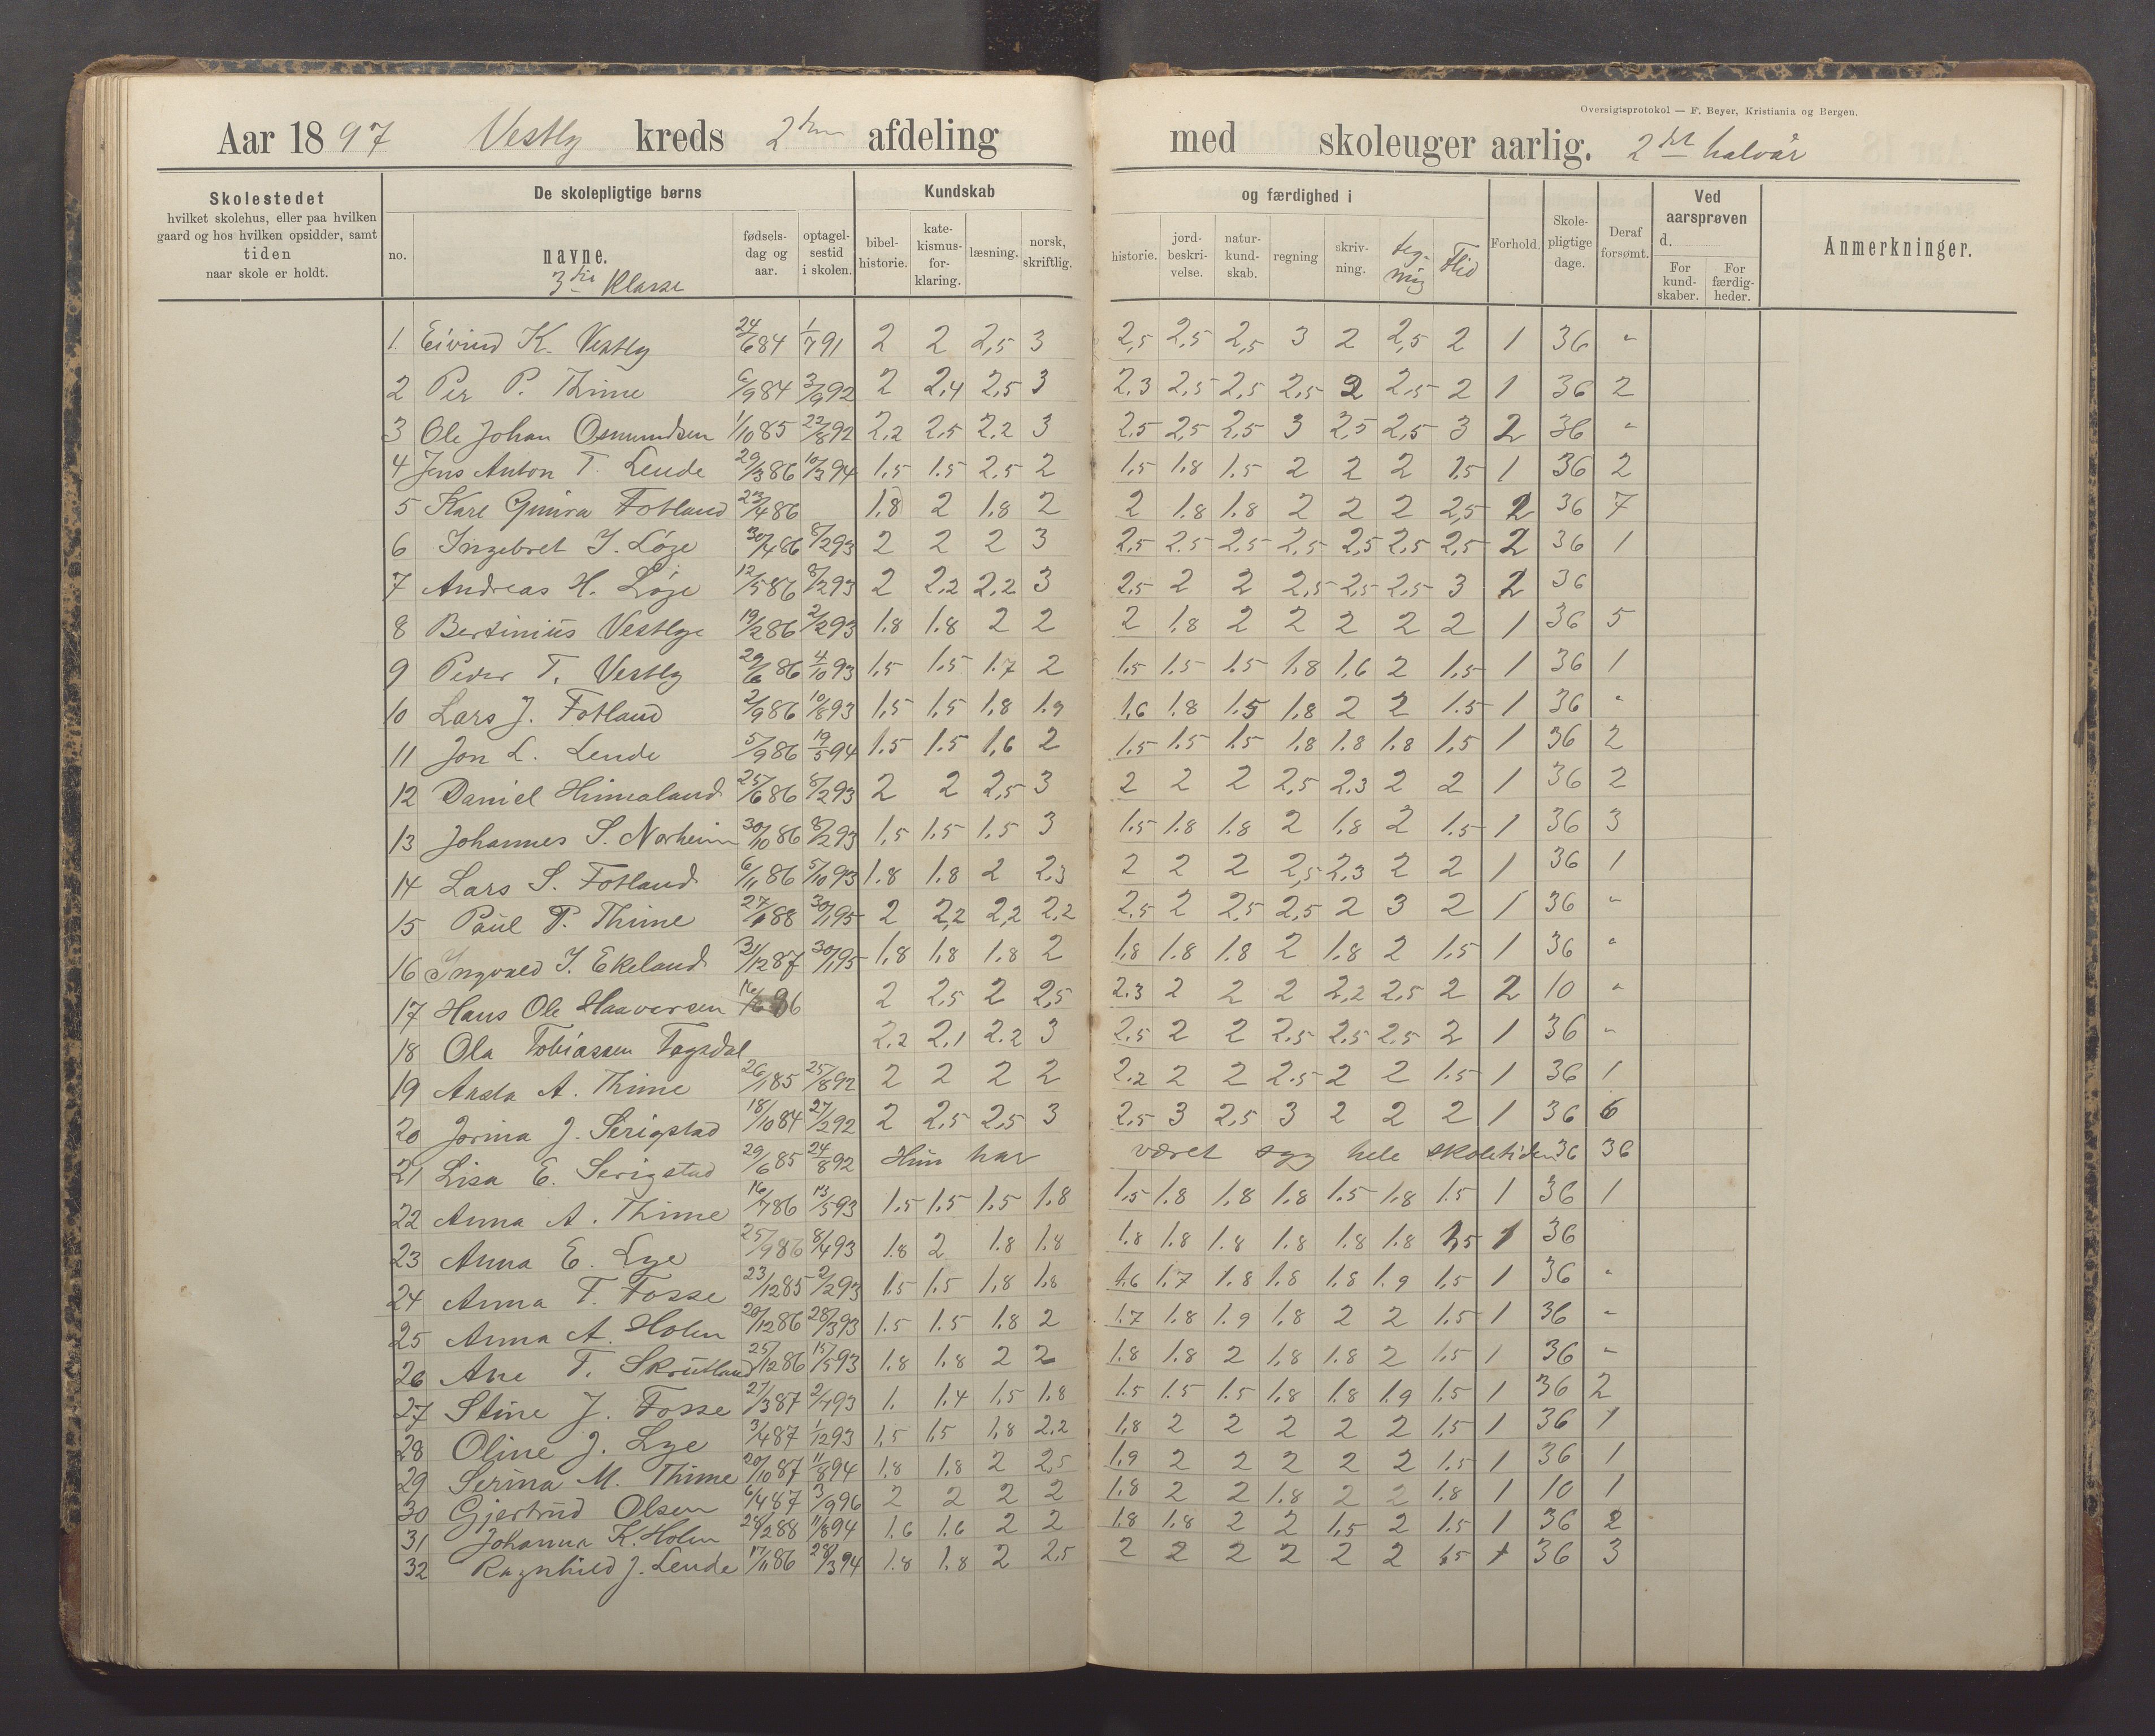 Oversigtsprotokol — F. Beyer, Kristiania og Bergen.
Aar 1897 Vestly kreds 2den afdeling med skoleuger aarlig. 2det halvår
Skolestedet hvilket skolehus, eller paa hvilken gaard og hos hvilken opsidder, samt tiden naar skole er holdt.
De skolepligtige børns
no. navne. fødsels-dag og aar. optagel-sestid i skolen.
3die Klasse
Kundskab og færdighed i
bibel-historie. kate-kismus-for-klaring. læsning. norsk, skriftlig. historie. jord-beskri-velse. natur-kund-skab. regning skriv-ning. teg-ning Flid Forhold. Skole-pligtige dage. Deraf forsømt.
Ved aarsprøven d. For kund-skaber. For færdig-heder.
Anmerkninger.
1 Eivind K. Vestly 24/6 84 1/7 91 2 2 2,5 3 2,5 2,5 2,5 3 2 2,5 2 1 36 "
2 Per P. Thime 6/9 84 3/9 92 2 2,4 2,5 3 2,3 2,5 2,5 2,5 2 2,5 2 1 36 2
3 Ole Johan Osmundsen 1/10 85 22/8 92 2,2 2,5 2,2 3 2,5 2,5 2,5 3 2,5 2,5 3 2 36 "
4 Jens Anton T. Lende 29/3 86 10/3 94 1,5 1,5 2,5 2 1,5 1,8 1,5 2 2 2 1,5 1 36 2
5 Karl Fotland 23/4 86 1,8 2 1,8 2 2 1,8 1,8 2 2 2 2,5 2 36 7
6 Ingebret J. Løge 30/4 86 8/2 93 2 2 2 3 2,5 2,5 2,5 2,5 2,5 2,5 2,5 2 36 1
7 Andreas H. Løge 12/5 86 8/2 93 2 2,2 2,2 3 2,5 2 2 2,5 2,5 2,5 3 2 36
8 Bertinius Vestlye 19/2 86 2/2 93 1,8 1,8 2 2 2 1,8 2 2 2 2 2 1 36 5
9 Peder T. Vestly 29/6 86 4/10 93 1,5 1,5 1,7 2 1,5 1,5 1,5 1,8 1,6 2 1,5 1 36 1
10 Lars J. Fotland 2/9 86 10/8 93 1,5 1,5 1,8 1,9 1,6 1,8 1,5 1,8 2 2 1,5 1 36 "
11 Jon L. Lende 5/9 86 19/5 94 1,5 1,5 1,6 2 1,5 1,5 1,5 1,8 1,8 1,8 1,5 1 36 2
12 Daniel Himaland 25/6 86 8/2 93 2 2 2,5 3 2 2 2 2,5 2,3 2 2 1 36 2
13 Johannes S. Norheim 30/10 86 8/2 93 1,5 1,5 1,5 3 1,5 1,8 1,8 2 1,8 2 1,5 1 36 3
14 Lars S. Fotland 6/11 86 5/10 93 1,8 1,8 2 2,3 2 2 2 2,5 2,3 2 2 1 36 1
15 Paul P. Thime 88 30/1 95 2 2,2 2,2 2,2 2,5 2 2,5 2,5 2 3 2 1 36 "
16 Ingvald J. Ekeland 31/12 87 30/1 95 1,8 1,8 1,8 2 1,8 1,8 1,8 2 1,8 2 1,5 1 36 "
17 Hans Ole Haaversen 16/6 86 2 2,5 2 2,5 2,3 2 2 2 2,2 2,5 2 2 10 "
18 Ola Tobiassen Fagsdal 2,2 2,1 2,2 3 2,5 2 2 2,5 2,5 2,5 2 1 36 "
19 A. Thime 26/1 85 25/8 92 2 2 2 2 2,2 2 2 2,5 2 2 1,5 1 36 1
20 Jorina J. Serigstad 18/10 84 27/2 92 2 2,5 2,5 3 2,5 3 2,5 3 2 2 2 1 36 6
21 Lisa E. Serigstad 29/6 85 24/8 92 Hun har været syg hele skoletiden 36 36
22 Anna A. Thime 16/7 86 13/5 93 1,5 1,5 1,5 1,8 1,5 1,8 1,8 1,8 1,5 1,8 1,5 1 36 1
23 Anna E. Lye 25/9 86 8/4 93 1,8 2 1,8 1,8 1,8 1,8 1,8 1,8 1,8 1,8 1,5 1 36
24 Anna T. Fosse 23/12 85 2/2 93 1,5 1,5 1,8 1,8 1,6 1,7 1,8 1,8 1,8 1,9 1,5 1 36 "
25 Anna A. Holen 20/12 86 28/3 93 1,5 1,5 1,8 2 1,7 1,8 1,9 1,8 2 2 1,5 1 36 "
26 Ane T. Skrutland 25/12 86 15/5 93 1,8 1,8 2 2 1,8 1,8 2 1,8 1,8 2 1,5 1 36 "
27 Stine J. Fosse 27/3 87 2/7 93 1. 1,4 1,5 1,8 1,5 1,5 1,5 1,8 1,8 1,9 1,5 1 36 2
28 Oline J. Lye 3/4 87 1/12 93 1,5 1,5 1,8 2,2 1,8 2 2 2 2 2 1,5 1 36 1
29 Serina M. Thime 20/10 87 11/8 94 1,8 1,8 2 2,5 1,9 2 2 2 2 2 1,5 1 36 1
30 Gjertrud Olsen 6/4 87 3/9 96 2 2 2 2 1,8 2 2 1,8 2 2 1,8 1 10 1
31 Johanna K. Holen 28/2 88 11/8 94 1,6 1,6 2 2 1,8 1,8 2 2 1,5 2 1,5 1 36 2
32 Ragnhild J. Lende 17/11 86 28/3 94 1,8 1,8 2 2,5 2 2 2 2 2 2 1,5 1 36 3